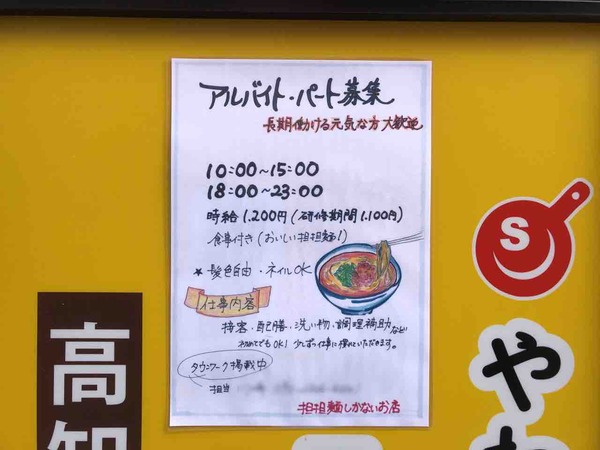 アルバイト・パート募集
長期働ける元気な方大歓迎
10:00〜15:00
18:00〜23:00
時給1,200円(研修期間1,100円)
食事付き(おいしい担担麺!)
★髪色自由・ネイルOK
仕事内容
接客・配膳・洗い物・調理補助など
初めてでもOK! 少しずつ仕事に慣れていただきます。
タウンワーク掲載中
担当
担担麺しかないお店
高知
S
や